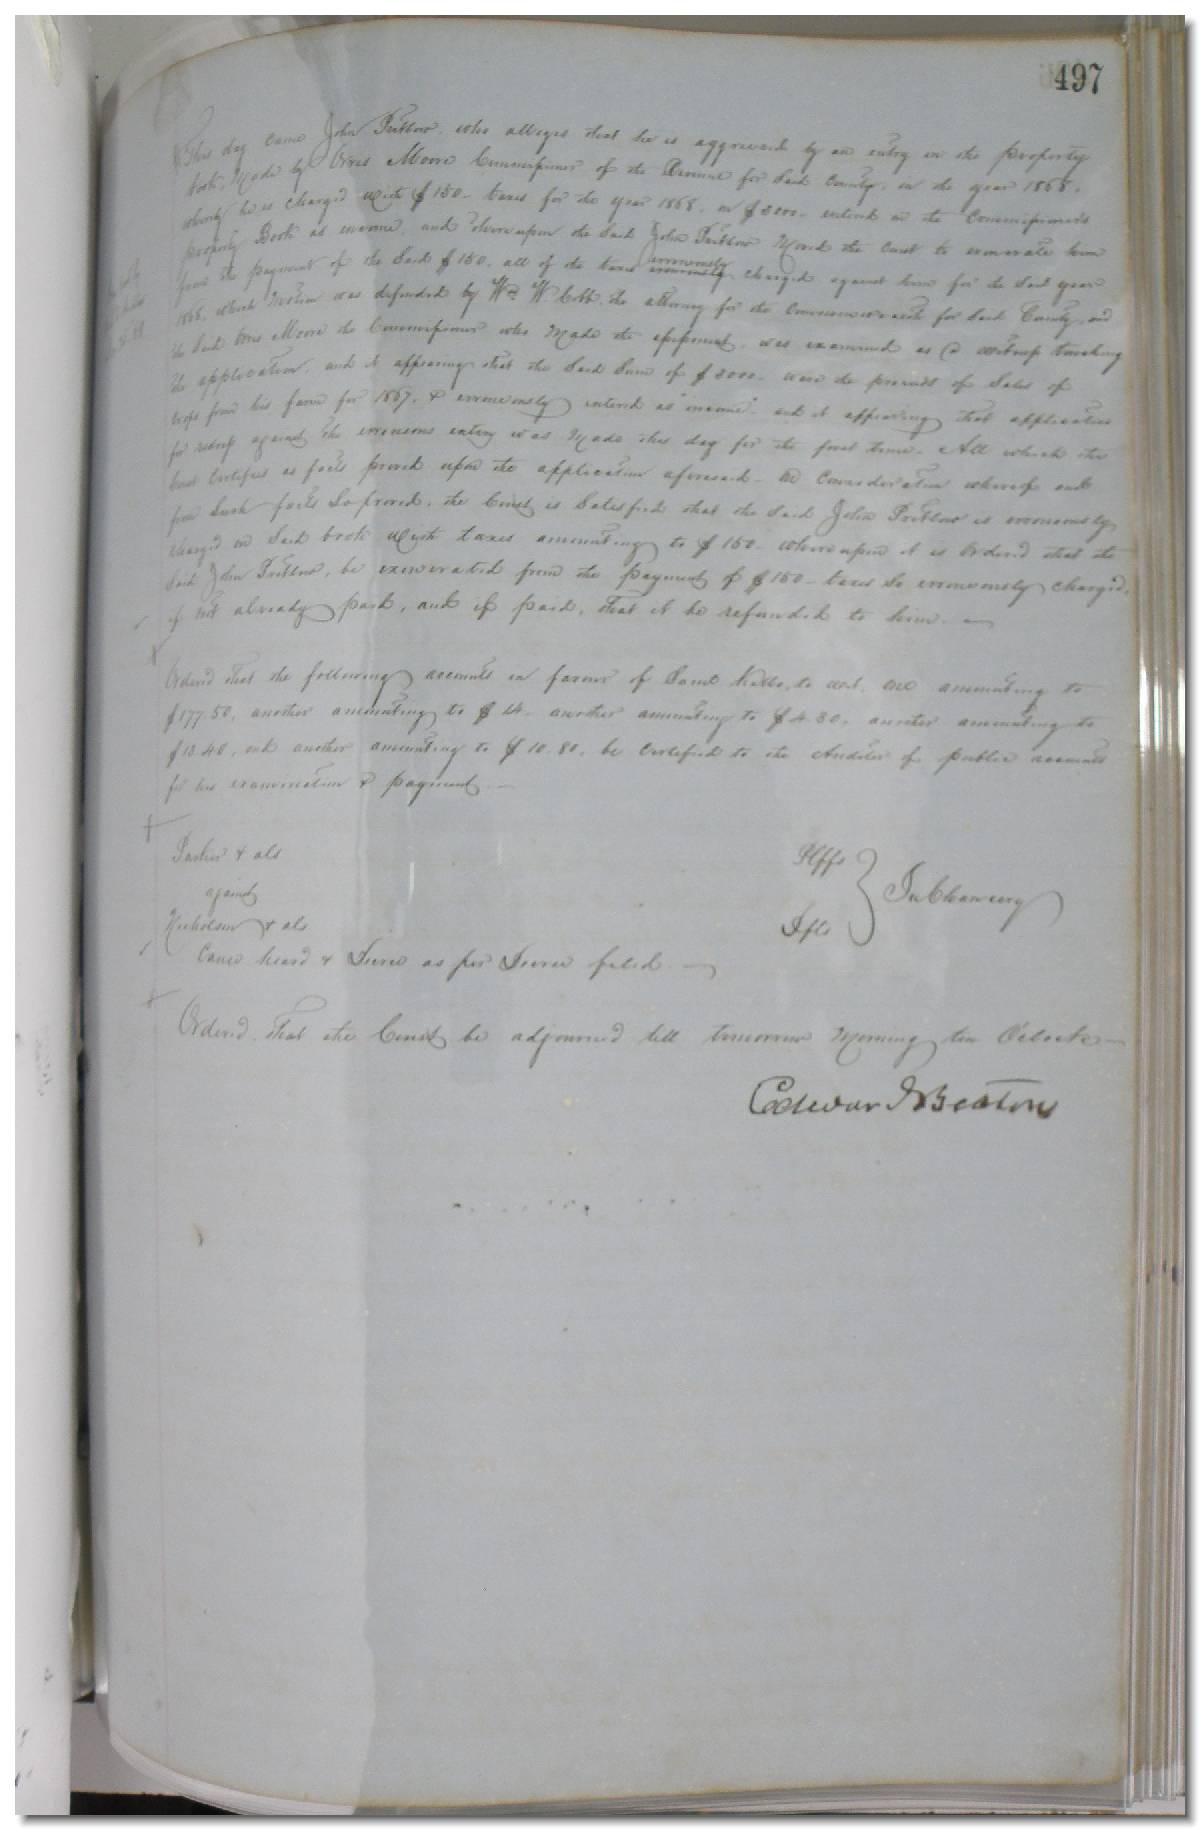 497
This day came John Pretlow, who alleges that he is aggrieved by an entry in the property
book, Made by Orris Moore Commissioner of the Revenue for Said County, in the year 1868,
whereby he is charged with $150- taxes for the year 1868, on $3000- entered on the Commissioners
property Book as income, and whereupon the Said John Pretlow Moved the Court to exonerate him
from the payment of the Said $150, all of the taxes erroneously charged against him for the Said year
1868, which Motion was defended by Wm W Cobb, the attorney for the Commonwealth for Said County, and
the Said Orris Moore the Commissioner who Made the assessment, was examined as a witness touching
the application, and it appearing that the Said Sum of $3000- were the proceeds of Sales of
crops from his farm for 1867, & erroneously entered as "income"- and it appearing that application
for redress against the erroneous entry was Made this day for the first time. All which the
Court Certifies as facts proved upon the application aforesaid- On Consideration whereof and
from Such facts So proved, the Court is Satisfied that the Said John Pretlow is erroneously
charged on Said book with taxes amounting to $150- whereupon it is Ordered that the
Said John Pretlow, be exonerated from the payment of $150- taxes So erroneously charged,
if not already paid, and if paid, that it be refunded to him.
Ordered that the following accounts in favour of Saml Kello, to wit, one amounting to
$177.50, another amounting to $14- another amounting to $4.30, another amounting to
$13.40, and another amounting to $10.80, be Certified to the Auditor of public accounts
for his examination & payment.
& als Plffs
against In Chancery
Nicholson & als Dfts
Cause heard & Decree as per Decree filed.
Ordered, that the Court be adjourned till tomorrow Morning ten Oclock